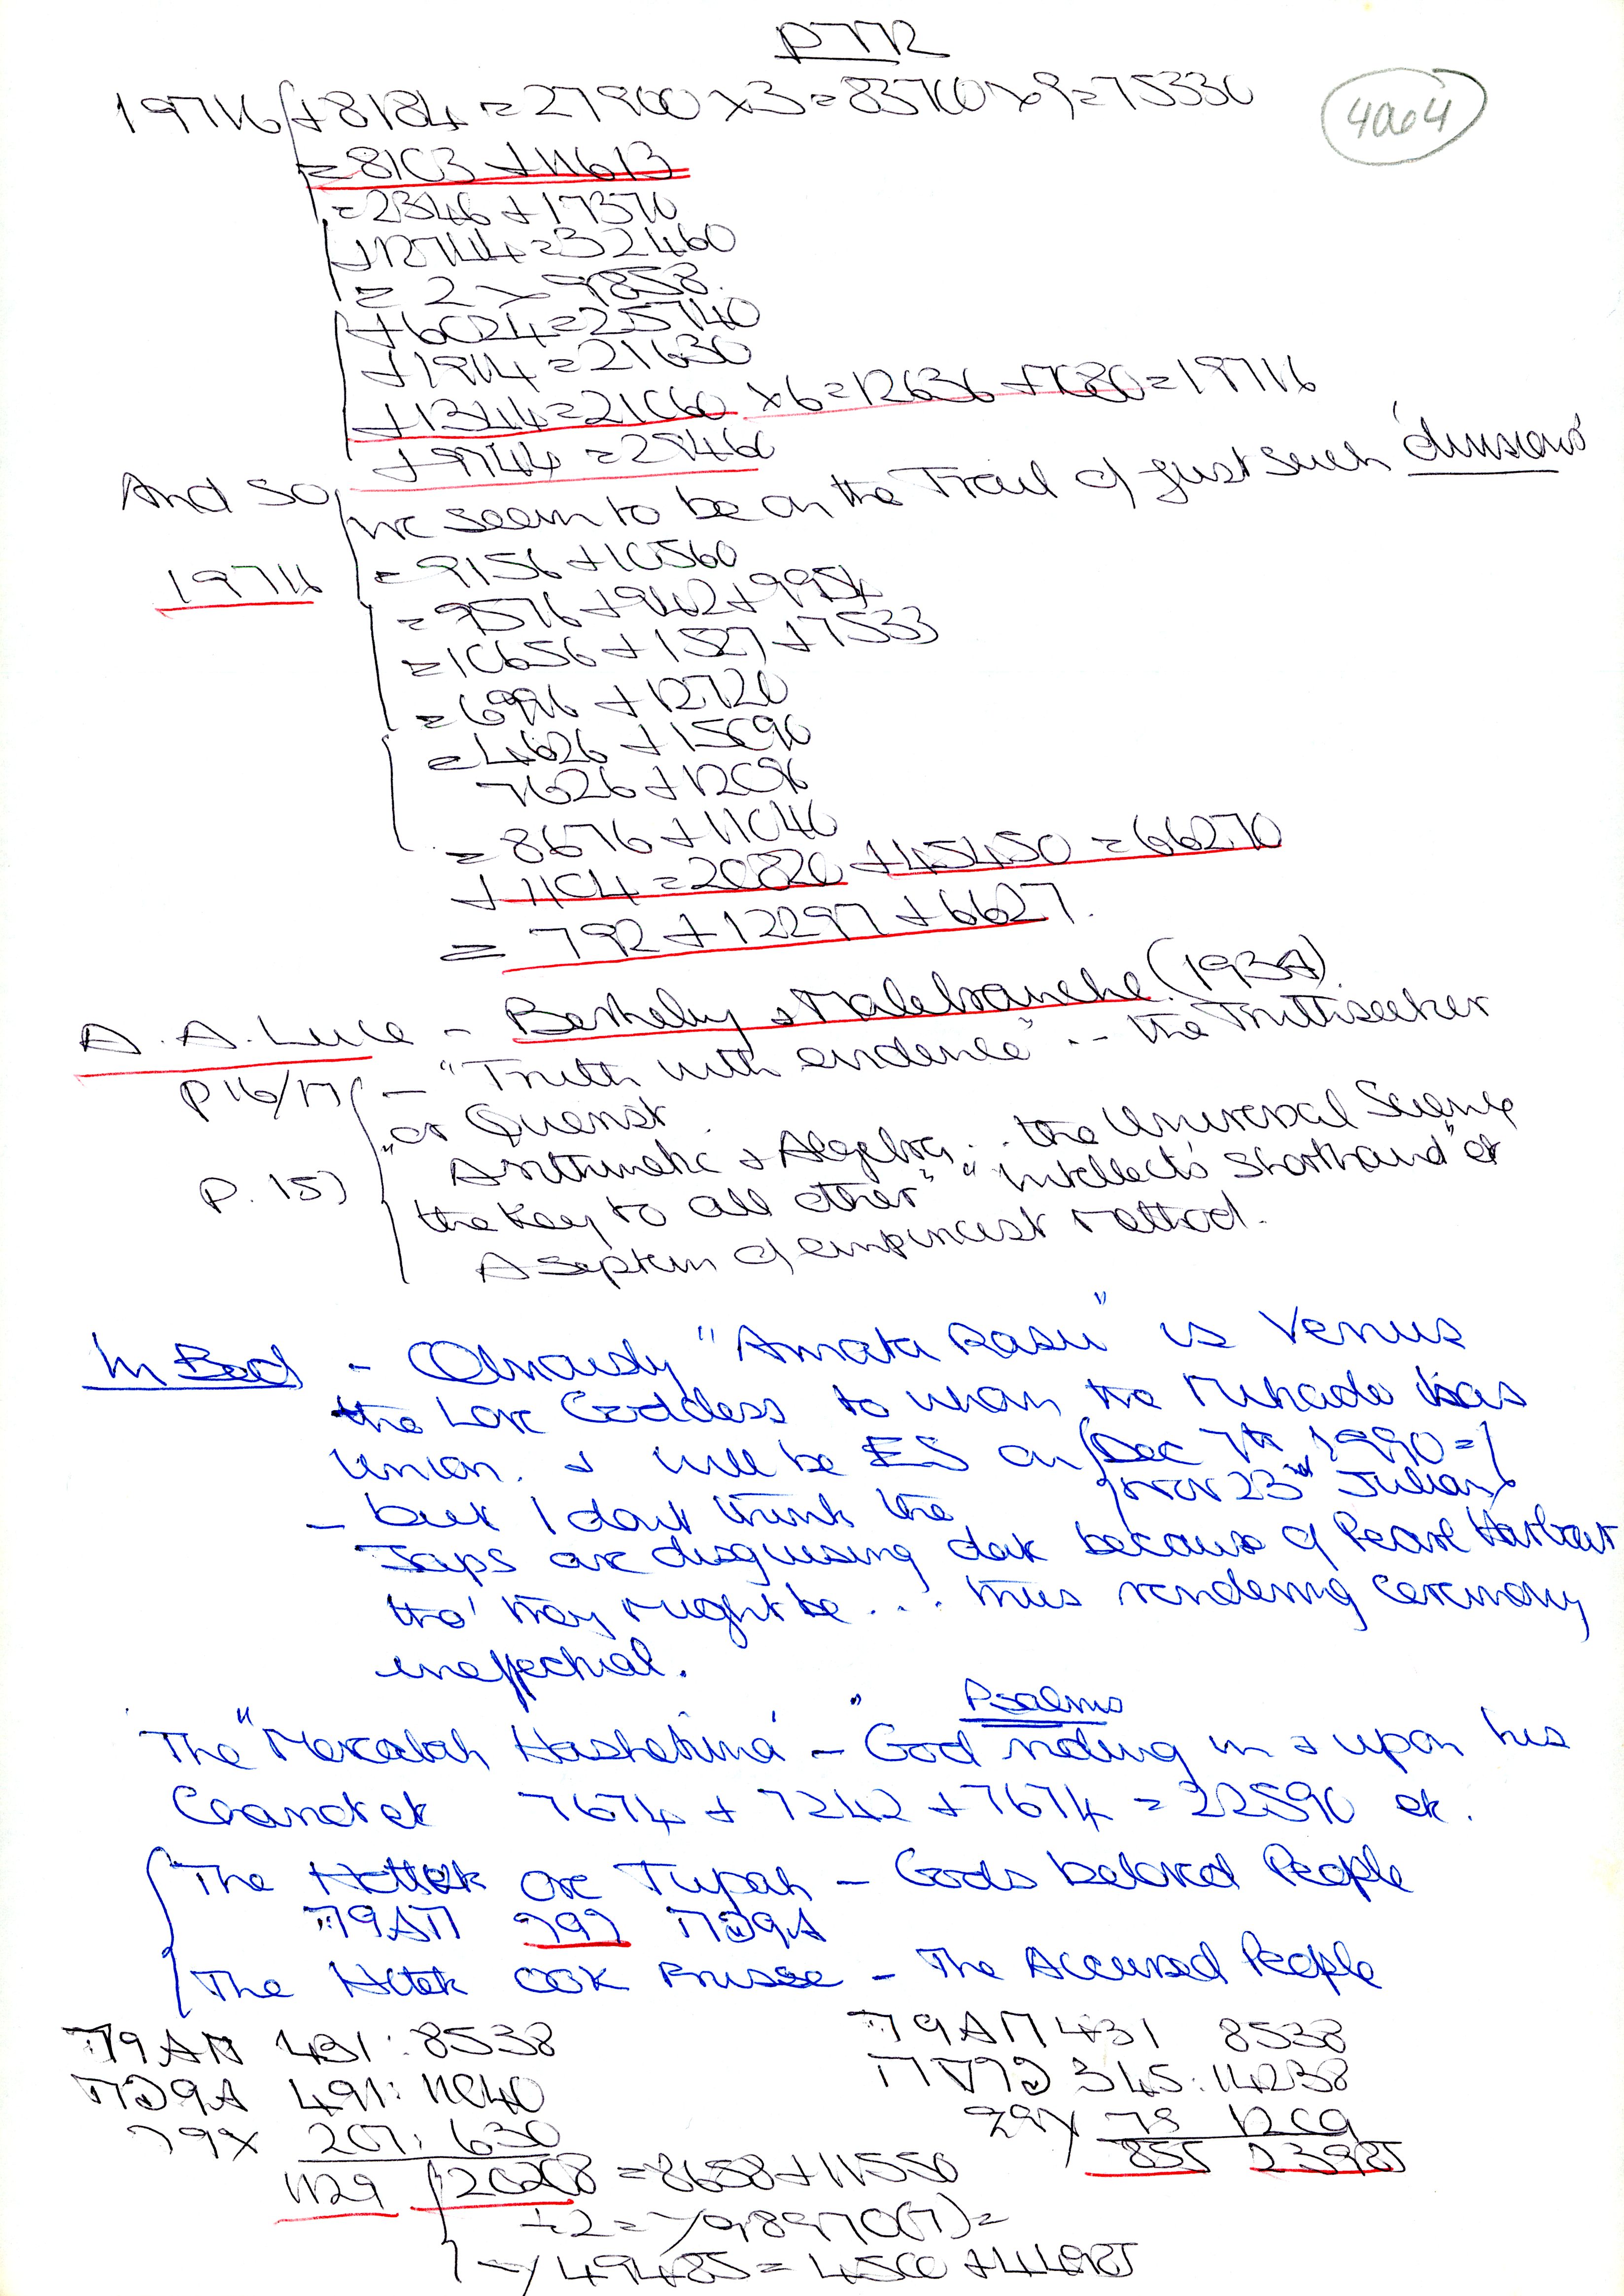 PTR
4 of 4
19716 + 8184 = 27900 x 3 = 83700 x 9 = 75330
= 8103 + 11613
= 2346 + 17370
+ 12744 = 32460
= 2 x 9858.
+ 6024 = 25740
+ 1914 = 21630
+ 1344 = 21060 x 6 = 12636 + 7080 = 19716
+ 9744 = 29460
And so we seem to be on the Trail of just such
19716 = 9156 + 10560
= 9576 + + 9954
= 10656 + 1527 + 7533
= 6996 + 12720
= 4626 + 15090
7626 + 12096
= 8676 + 11040
+ 1104 = 20820 + 45450 = 66270
= 792 + 12297 + 6627.
A. A. Luce - Berkeley & Malebranche (1934)
P 16/17 - "Truth with evidence" .. the Truthseeker
or Querist
P. 157 "Arithmetic & Algebra .. the Universal Science
the key to all other" "intellects shorthand" et
A system of empiricist method.
In Bed - Obviously "Amata Rasu" is Venus
the Love Goddess to whom the Mikado has
union. & will be ES on (Dec 7th 1990 =
Nov 23rd Julian)
- but I dont think the
Japs are disguising date because of Pearl Harbour
tho' they might be ... thus rendering Ceremony
ineffectual.
Psalms
The "Mercabah " - "God riding in & upon his
Chariot et 7674 + 7242 + 7674 = 22590 et.
The are Tupah - Gods beloved People
797
The - The Accursed People
431 : 8538
491 : 11040
207 : 630
1129 20208 = 8658 + 11550
431 8538
345 : 14238
78 1209
855 23985
÷ 2 =
49485 = 4500 + 44985